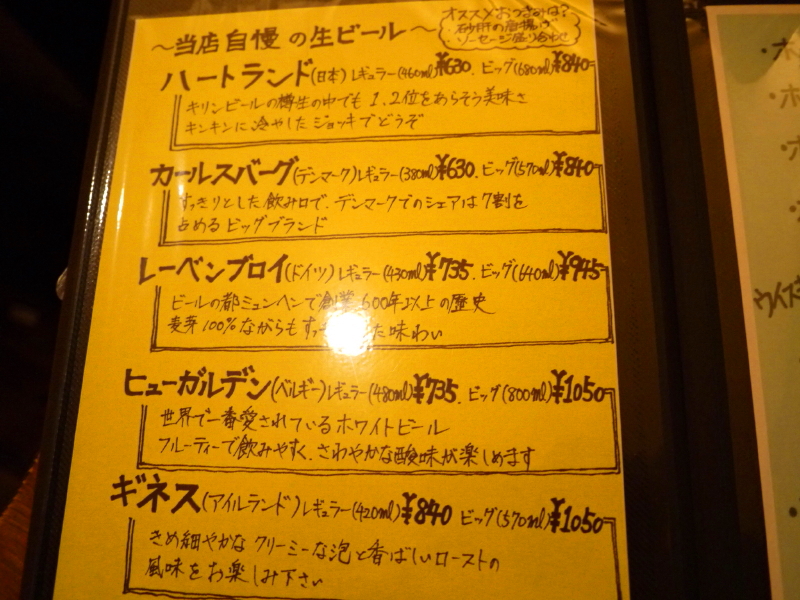 ～当店自慢の生ビール～
オススメおつまみは?
砂肝の唐揚げ
ソーセージ盛り合わせ
ハートランド(日本)レギュラー(460ml)¥630. ビッグ(680ml)¥840
キリンビールの樽生の中でも 1.2位をあらそう美味さ
キンキンに冷やしたジョッキでどうぞ
カールスバーグ(デンマーク)レギュラー(380ml)¥630. ビッグ(570ml)¥840
すっきりとした飲み口で、デンマークでのシェアは7割を
占めるビッグブランド
レーベンブロイ(ドイツ)レギュラー(430ml)¥735. ビッグ(640ml)¥945
ビールの都ミュンヘンで創業600年以上の歴史
麦芽100%ながらもすっ た味わい
ヒューガルデン(ベルギー)レギュラー(480ml)¥735. ビッグ(800ml)¥1050
世界で一番愛されているホワイトビール
フルーティーで飲みやすく、さわやかな酸味が楽しめます
ギネス(アイルランド)レギュラー(420ml)¥840 ビッグ(570ml)¥1050
きめ細やかなクリーミーな泡と香ばしいローストの
風味をお楽しみ下さい